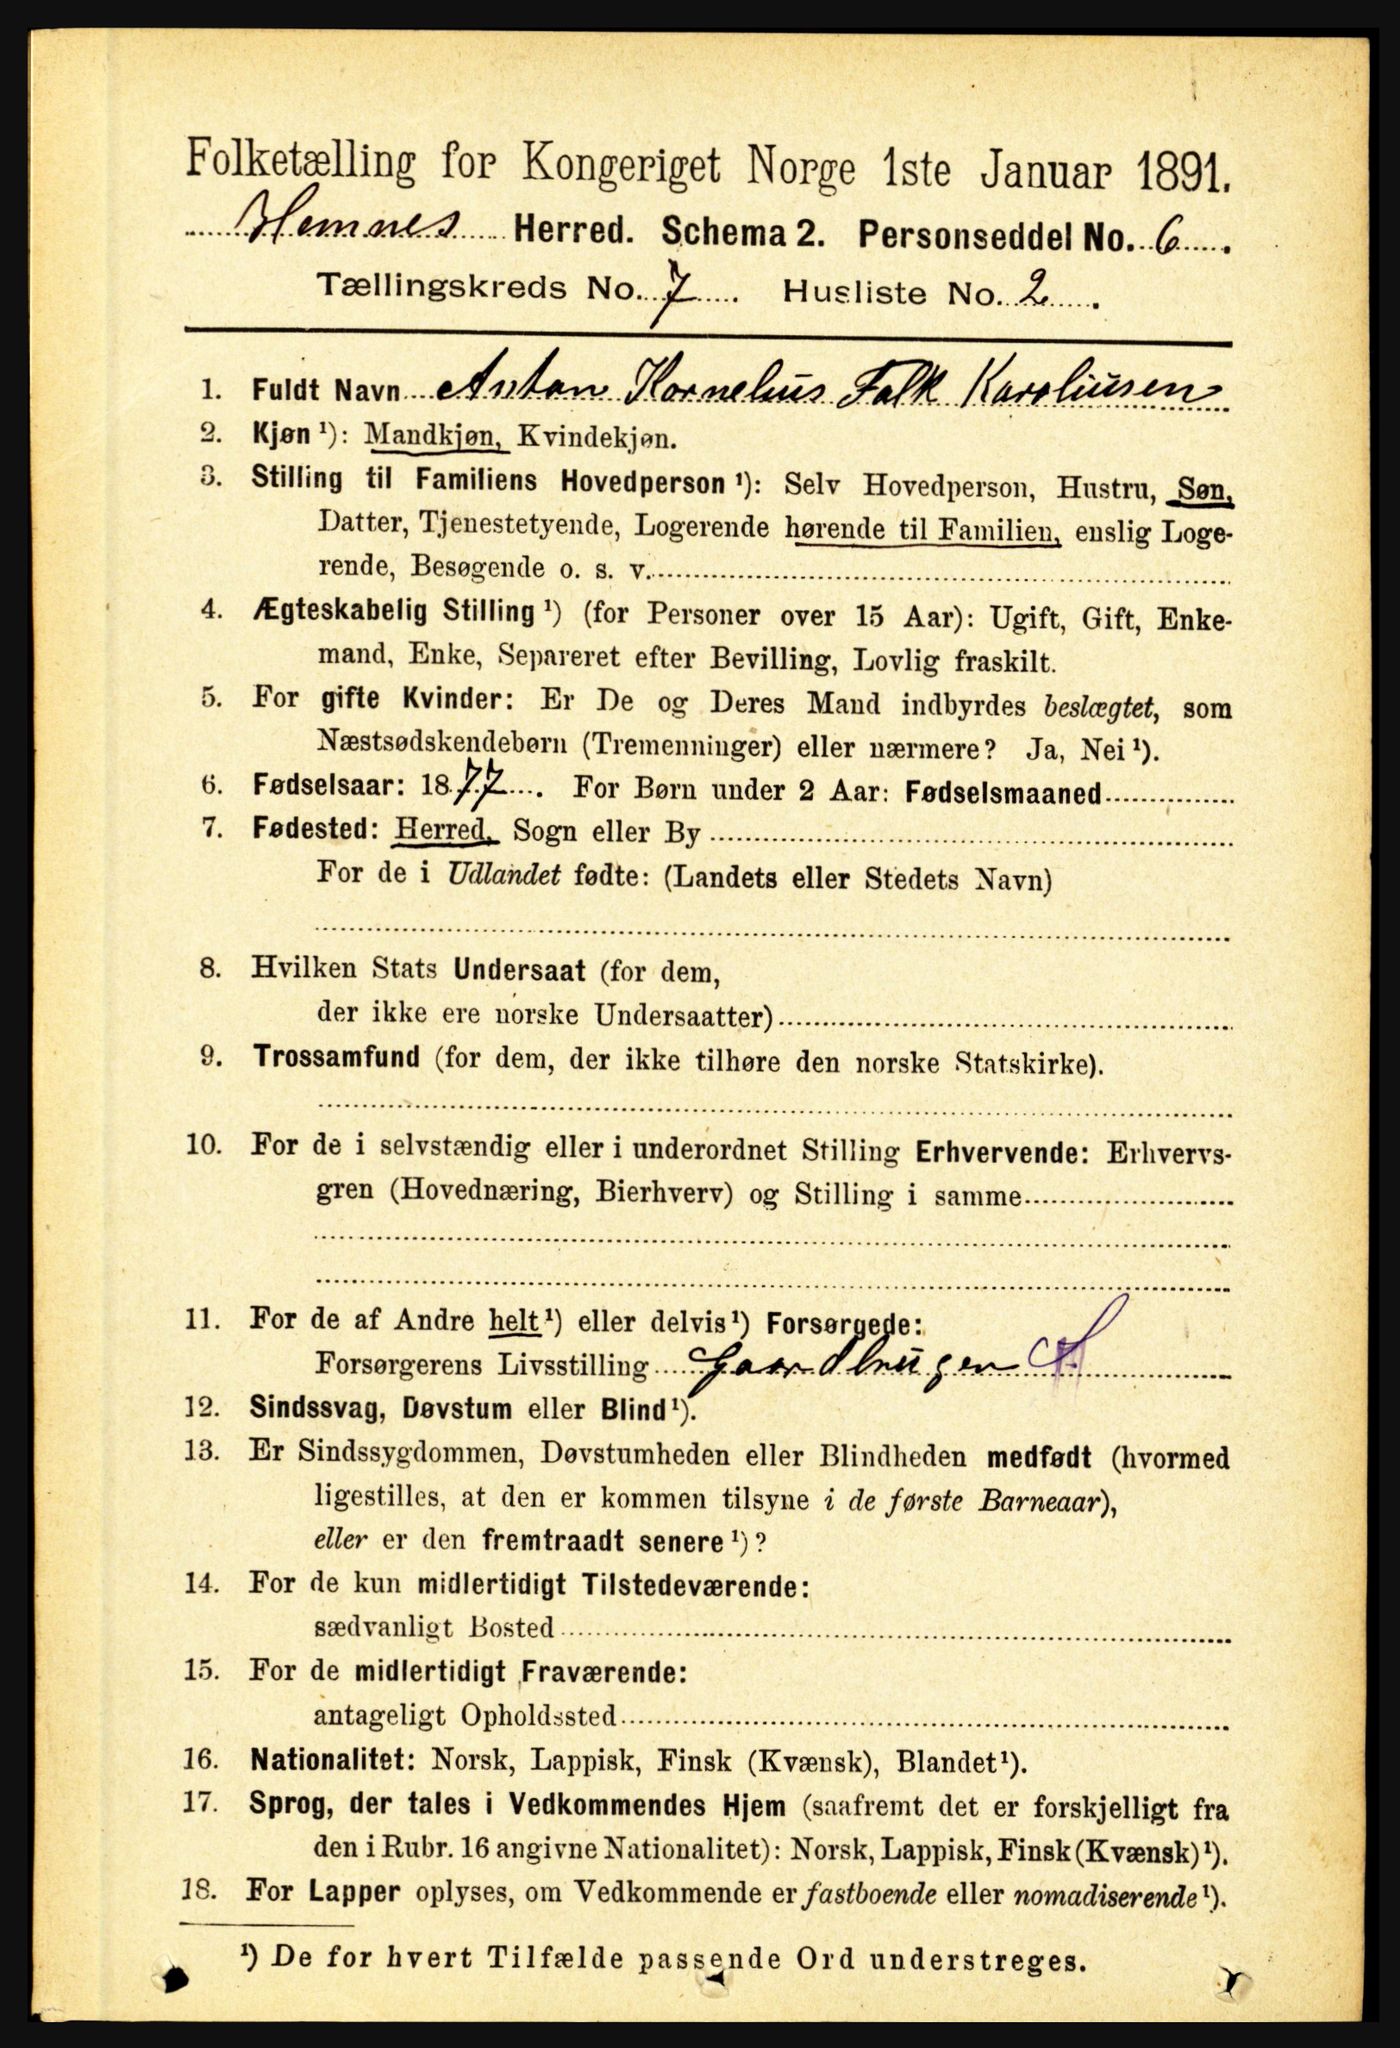 Folketælling for Kongeriget Norge 1ste Januar 1891.
Hemnes Herred. Schema 2. Personseddel No. 6.
Tællingskreds No. 7. Husliste No. 2.
1. Fuldt Navn Anton Kornelius Falk Karoliusen
2. Kjøn ¹): Mandkjøn, Kvindekjøn.
3. Stilling til Familiens Hovedperson ¹): Selv Hovedperson, Hustru, Søn,
Datter, Tjenestetyende, Logerende hørende til Familien, enslig Loge-
rende, Besøgende o. s. v.
4. Ægteskabelig Stilling ¹) (for Personer over 15 Aar): Ugift, Gift, Enke-
mand, Enke, Separeret efter Bevilling, Lovlig fraskilt.
5. For gifte Kvinder: Er De og Deres Mand indbyrdes beslægtet, som
Næstsødskendebørn (Tremenninger) eller nærmere? Ja, Nei ¹).
6. Fødselsaar: 1877. For Børn under 2 Aar: Fødselsmaaned
7. Fødested: Herred, Sogn eller By
For de i Udlandet fødte: (Landets eller Stedets Navn)
8. Hvilken Stats Undersaat (for dem,
der ikke ere norske Undersaatter)
9. Trossamfund (for dem, der ikke tilhøre den norske Statskirke).
10. For de i selvstændig eller i underordnet Stilling Erhvervende: Erhvervs-
gren (Hovednæring, Bierhverv) og Stilling i samme
11. For de af Andre helt ¹) eller delvis ¹) Forsørgede:
Forsørgerens Livsstilling Gaardbruger S.
12. Sindssvag, Døvstum eller Blind ¹).
13. Er Sindssygdommen, Døvstumheden eller Blindheden medfødt (hvormed
ligestilles, at den er kommen tilsyne i de første Barneaar),
eller er den fremtraadt senere ¹)?
14. For de kun midlertidigt Tilstedeværende:
sædvanligt Bosted
15. For de midlertidigt Fraværende:
antageligt Opholdssted
16. Nationalitet: Norsk, Lappisk, Finsk (Kvænsk), Blandet ¹).
17. Sprog, der tales i Vedkommendes Hjem (saafremt det er forskjelligt fra
den i Rubr. 16 angivne Nationalitet): Norsk, Lappisk, Finsk (Kvænsk) ¹).
18. For Lapper oplyses, om Vedkommende er fastboende eller nomadiserende ¹).
¹) De for hvert Tilfælde passende Ord understreges.